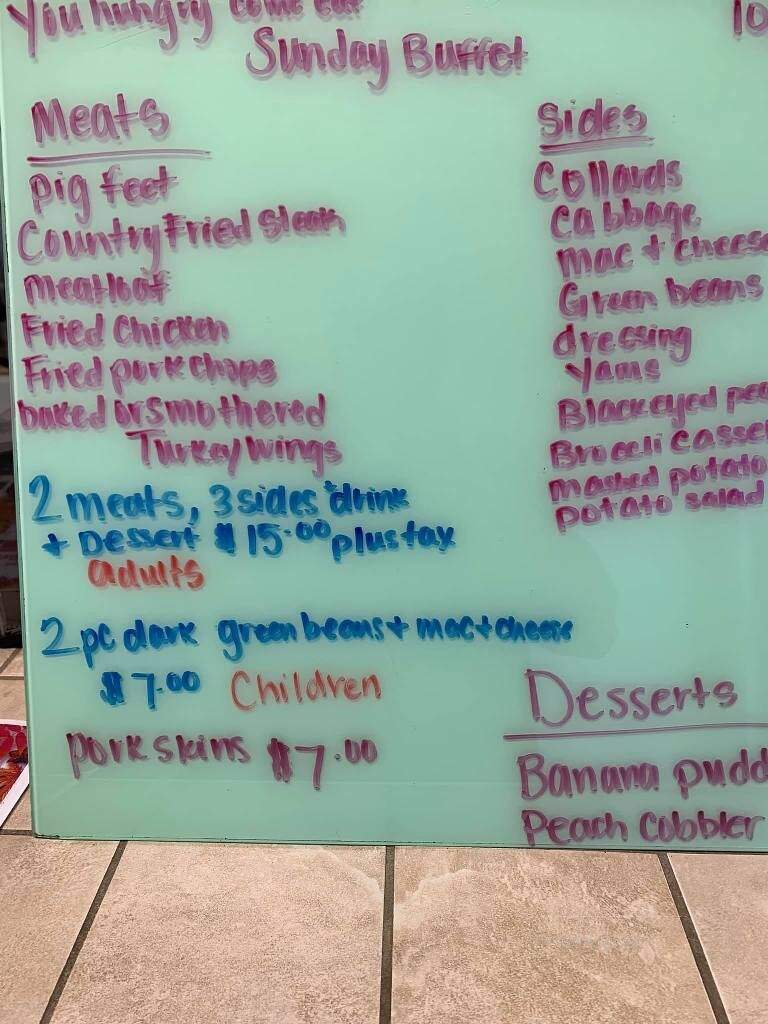 You hungry come eat
10
Sunday Buffet
Meats
Pig feet
Country Fried Steak
Meatloaf
Fried Chicken
Fried pork chops
baked or smothered
Turkey Wings
2 meats, 3 sides + drink
+ Dessert $15.00 plus tax
adults
2 pc dark green beans + mac + cheese
$7.00 Children
Pork skins $7.00
Sides
Collards
Cabbage
Mac + cheese
Green beans
dressing
Yams
Blackeyed pea
Broceli Casse
Mashed potato
Potato salad
Desserts
Banana pudd
Peach Cobbler